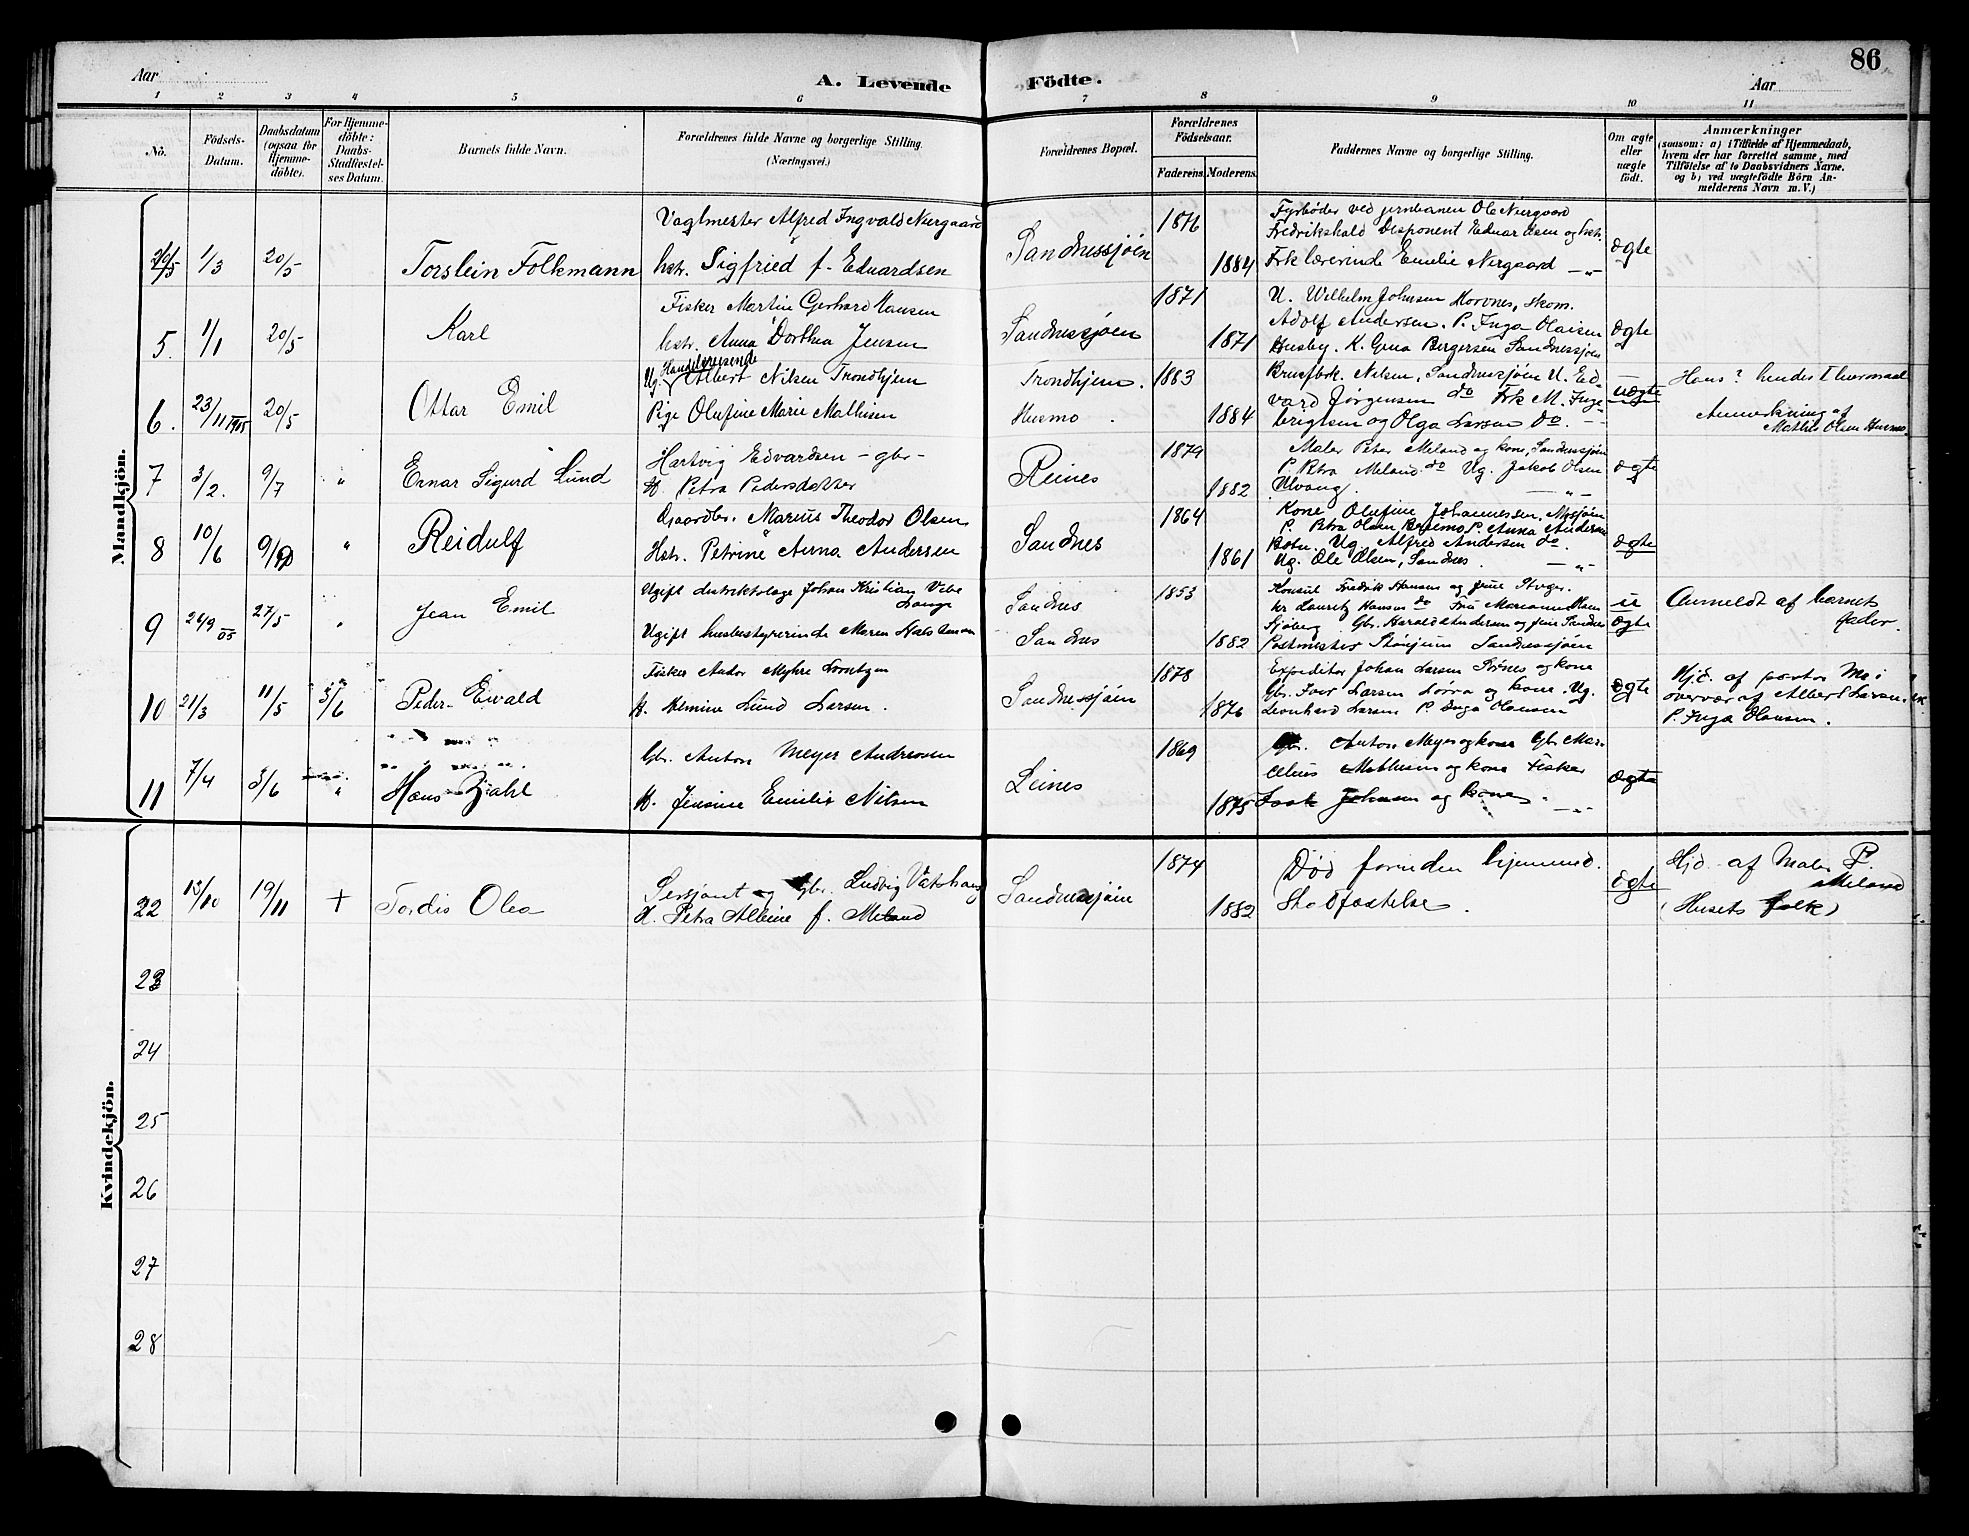 86
Aar
A. Levende Födte.
Aar
1 2 3 4 5 6 7 8 9 10 11
No.
Födsels-
Datum.
Daabsdatum
(ogsaa for
Hjemme-
döbte).
For Hjemme-
döbte:
Daabs-
Stadfæstel-
ses Datum.
Barnets fulde Navn.
Forældrenes fulde Navne og borgerlige Stilling.
(Næringsvei.)
Forældrenes Bopæl.
Forældrenes
Födselsaar.
Faderens. Moderens.
Faddernes Navne og borgerlige Stilling.
Om ægte
eller
uægte
födt.
Anmærkninger
(saasom: a) i Tilfælde af Hjemmedaab,
hvem der har forrettet samme, med
Tilföielse af to Daabsvidners Navne,
og b) ved uægtefödte Börn An-
melderens Navn m. V.)
Mandkjön.
1/3 20/5 Torstein Folkmann
Vagtmester Alfred Ingvald Nergaard
hstr. Sigfried f. Edvardsen
Sandnessjöen 1876 1884
Fyrbøder ved jernbanen Ole Nergaard
Fredrikshald Disponent Edvardsen og hstr.
Frk lærerinde Emilie Nergaard — „ —
ægte
5. 1/1 20/5 Karl
Fisker Martin Gerhard Hansen
hstr. Anna Dorthea Jensen
Sandnessjøen 1871 1871
U. Wilhelm Johnsen Horvnes, skom.
Adolf Andersen. P. Inga Olaisen
Husby. K. Gina Bergersen Sandnessjøen
ægte
6. 23/11 1905 20/5 Ottar Emil
Ug. Handelsreisende Albert Nilsen Trondhjem
Pige Olufine Marie Mathisen
Trondhjem. Husmo 1883 1884
Nilsen, Sandnessjøen U. Ed-
vard Jørgensen do Frk M. Inge-
brigtsen og Olga Larsen do. — —
uægte
Hans? hendes 1
Anmerkning af
Mathis Olsen Husmo.
7 3/2. 9/7 „ Einar Sigurd Lund
Hartvig Edvardsen — gbr —
H. Petra Pedersdatter
Reines 1879 1882
Maler Peter Meland og kone, Sandnessjøen
P. Petra Meland do Ug. Jakob Olsen
Ulvang. — „ —
ægte
8 10/6 9/9 „ Reidulf
Gaardbr. Marius Theodor Olsen
Hstr. Petrine Anna Andersen
Sandnes 1864 1861
Kone Olufine Johannessen, Mosjøen
P. Petra Olsen P. Anna Andersen
Botn. Ug. Alfred Andersen do.
Ug. Ole Olsen, Sandnes. — „ —
ægte
9 26/9 05 27/5 „ Jean Emil
Ugift distriktslæge Johan Kristian Vibe
Lange
Ugift husbestyrerinde Maren
Sandnes
Sandnes 1853 1882
Konsul Fredrik Hansen og frue
hr Lauritz Hansen do Fru Marianne
Sjøberg Gbr. Harald Andersen og frue Sandnes
Postmester Sandnessjøen
u
ægte
Anmeldt af barnets
fader.
10 21/3 11/5 3/6 Peder Ewald
Fisker Andor Myhre Lorntzen
H. Almine Lund Larsen.
Sandnessjøen 1878 1876
Expeditør Johan Larsen og kone
Gbr. Iver Larsen og kone. Ug.
Leonhard Larsen P. Inga Olausen
ægte
Hjd. af pastor Mo i
overvær af Albert Larsen
P. Inga Olausen.
11 7/4 3/6 „ Hans Zahl
Gbr. Anton Meyer Andreassen
H. Jensine Emilie Nilsen
Leines 1869 1875
Gbr. Anton Meyer og kone Gbr Mar-
elius Mathisen og kone Fisker
Isak Johnsen og kone — „ —
ægte
Kvindekjön.
22 13/10 19/11 + Tordis Olea
Sersjant og Gbr. Ludvig Vatshaug
H. Petra Albine f. Meland
Sandnessjøen 1874 1882
Død forinden hjemmed.
Stadfæstelse.
ægte
Hjd af Maler P.
Meland
(Husets folk)
23
24
25
26
27
28